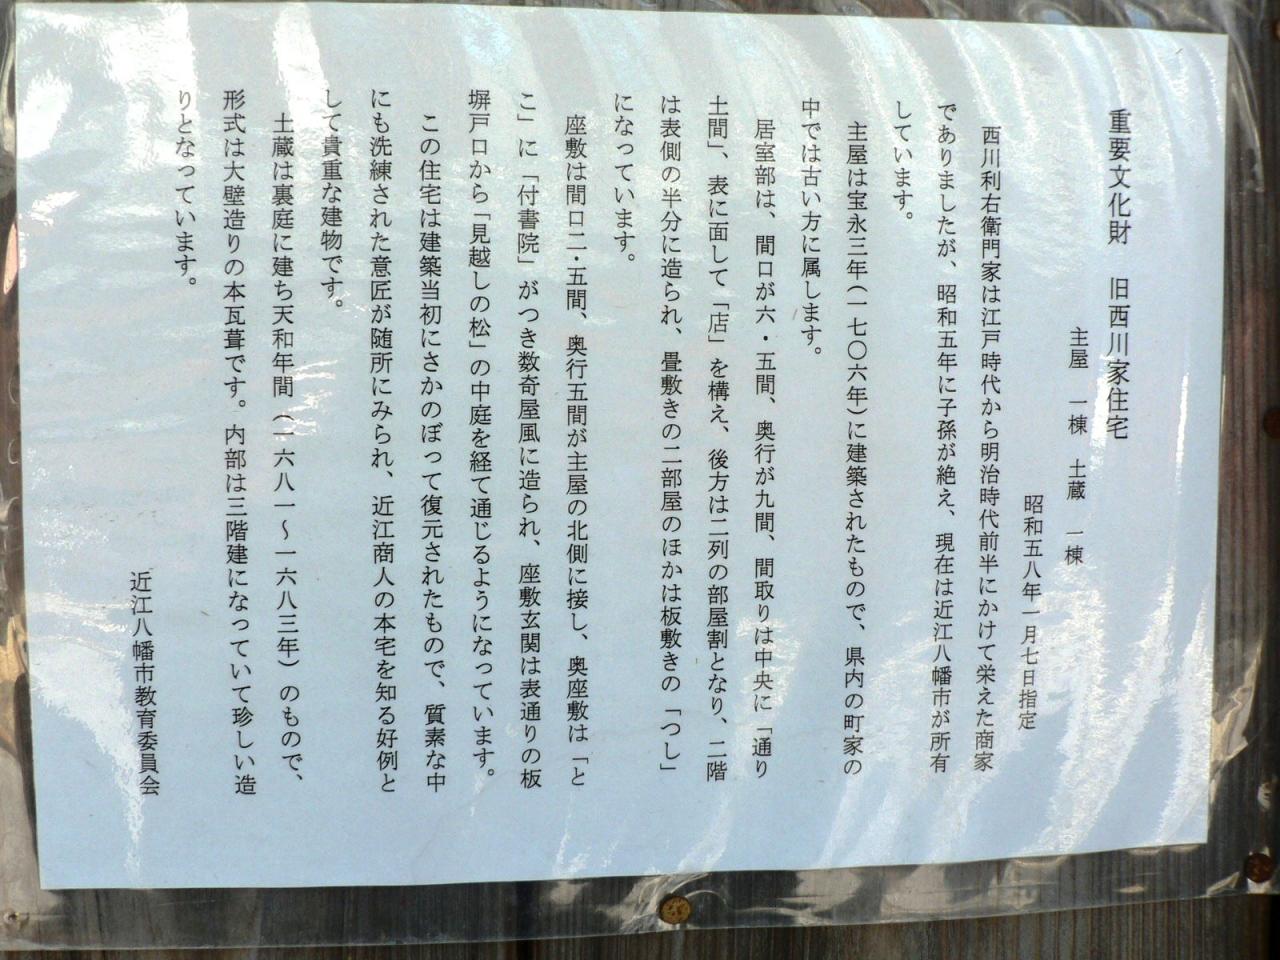 重要文化財　旧西川家住宅
主屋　一棟　土蔵　一棟
昭和五八年一月七日指定
西川利右衛門家は江戸時代から明治時代前半にかけて栄えた商家
でありましたが、昭和五年に子孫が絶え、現在は近江八幡市が所有
しています。
主屋は宝永三年（一七〇六年）に建築されたもので、県内の町家の
中では古い方に属します。
居室部は、間口が六・五間、奥行が九間、間取りは中央に「通り
土間」、表に面して「店」を構え、後方は二列の部屋割となり、二階
は表側の半分に造られ、畳敷きの二部屋のほかは板敷きの「つし」
になっています。
座敷は間口二・五間、奥行五間が主屋の北側に接し、奥座敷は「と
こ」に「付書院」がつき数奇屋風に造られ、座敷玄関は表通りの板
塀戸口から「見越しの松」の中庭を経て通じるようになっています。
この住宅は建築当初にさかのぼって復元されたもので、質素な中
にも洗練された意匠が随所にみられ、近江商人の本宅を知る好例と
して貴重な建物です。
土蔵は裏庭に建ち天和年間（一六八一～一六八三年）のもので、
形式は大壁造りの本瓦葺です。内部は三階建になっていて珍しい造
りとなっています。
近江八幡市教育委員会